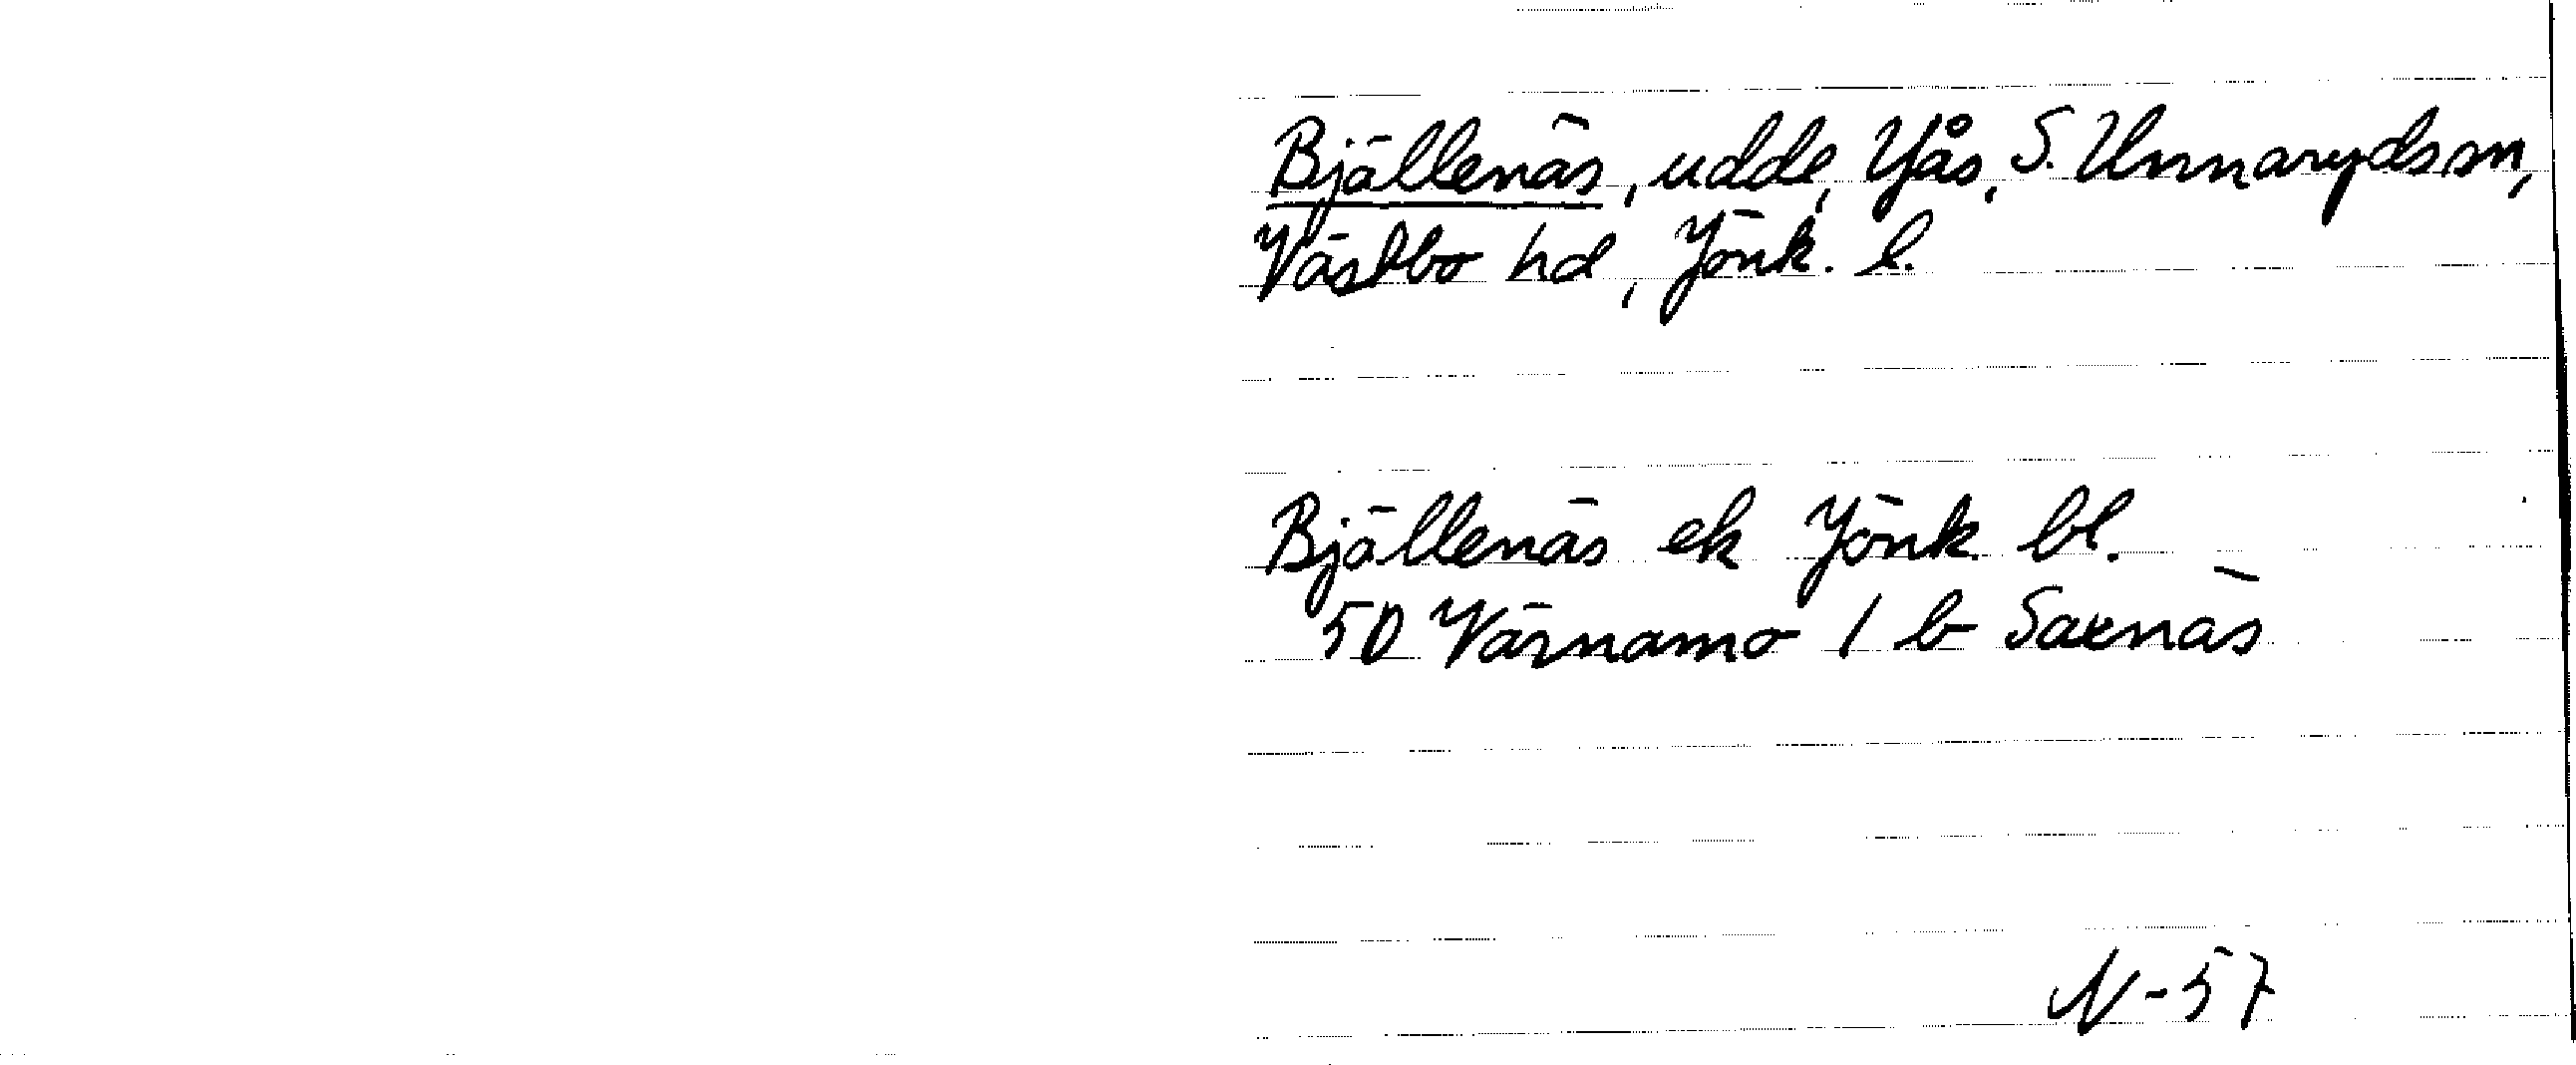 Bjällenäs, udde, Yås, S. Unnaryds sn,
Västbo hd, Jönk. l.
Bjällenäs ek Jönk. bl.
5D Värnamo 1 b Saxnäs
N-57